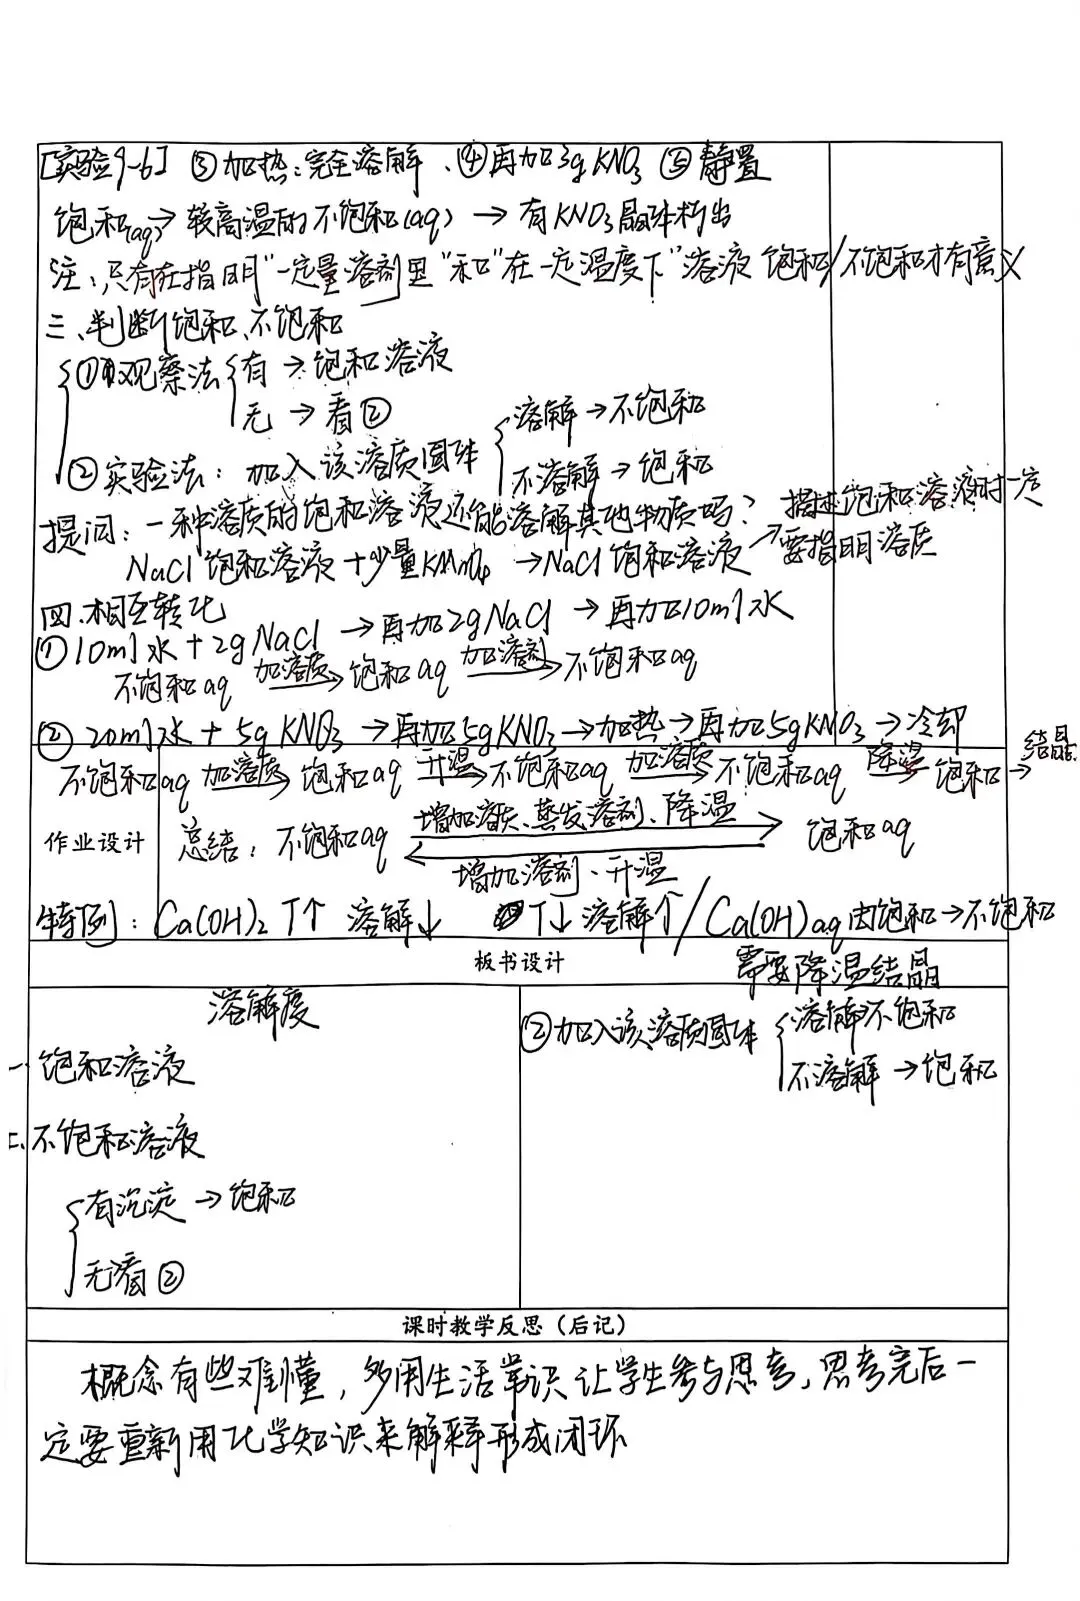 [实验9-6] ③加热:完全溶解、④再加3g KNO₃ ⑤静置
饱和(aq)→较高温的不饱和(aq) → 有KNO₃晶体析出
注:只有在指明"一定量溶剂里"和"在一定温度下"溶液饱和/不饱和才有意义
三、判断饱和、不饱和
①观察法 有→饱和溶液
无→看②
溶解→不饱和
②实验法:加入该溶质固体
不溶解→饱和
提问:一种溶质的饱和溶液还能溶解其他物质吗? 描述饱和溶液时一定
NaCl饱和溶液+少量KMnO₄ →NaCl饱和溶液 →要指明溶质
四.相互转化
①10ml水+2gNaCl →再加2gNaCl →再加10ml水
不饱和aq 加溶质→ 饱和aq 加溶剂→ 不饱和aq
②20ml水+5gKNO₃→再加5gKNO₃→加热→再加5gKNO₃→冷却
不饱和aq 加溶质→ 饱和aq 升温→ 不饱和aq 加溶质→ 不饱和aq 降温→ 饱和→结晶
作业设计
总结:不饱和aq 增加溶质、蒸发溶剂、降温 饱和aq
增加溶剂、升温
特例:Ca(OH)₂ T↑ 溶解↓ T↓ 溶解↑/Ca(OH)aq由饱和→不饱和
需要降温结晶
板书设计
溶解度
一、饱和溶液
二、不饱和溶液
有沉淀→饱和
无看②
②加入该溶质固体 溶解→不饱和
不溶解→饱和
课时教学反思(后记)
概念有些难懂,多用生活常识让学生参与思考,思考完后一
定要重新用化学知识来解释形成闭环